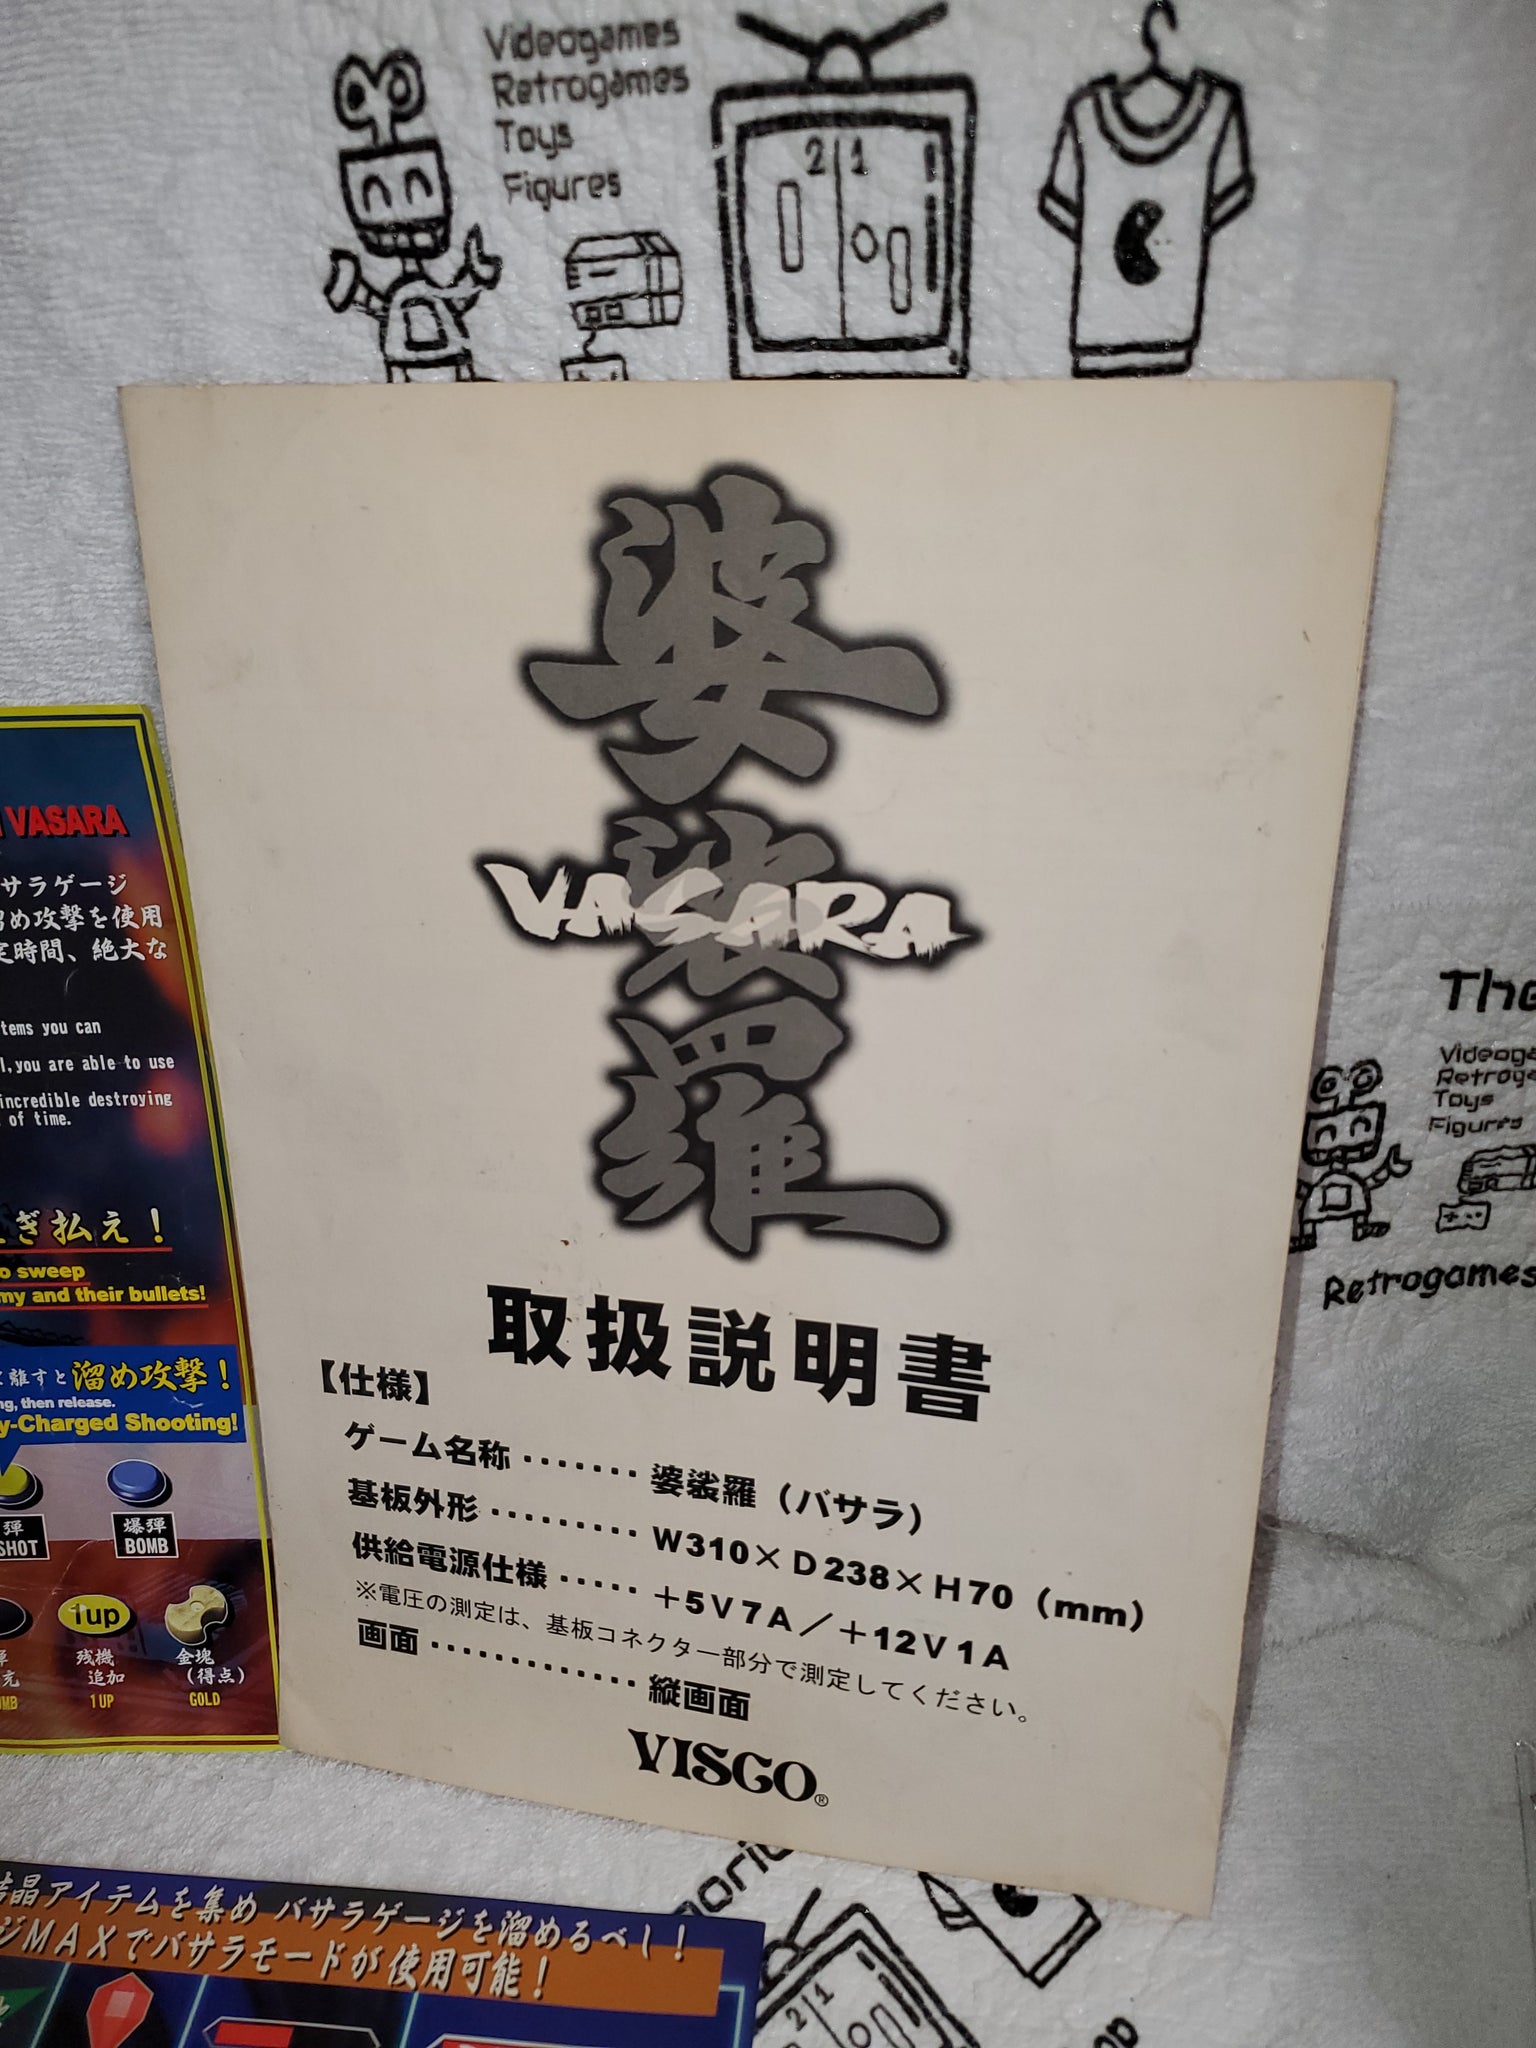 Videogames
Retrogames
Toys
Figures
21
婆娑羅
VASARA
取扱説明書
【仕様】
ゲーム名称・・・・・・・婆娑羅（バサラ）
基板外形・・・・・・・・・W310×D238×H70（mm）
供給電源仕様・・・・・+5V7A／+12V1A
※電圧の測定は、基板コネクター部分で測定してください。
画面・・・・・・・・・・・・・縦画面
VISCO®
VASARA
サラゲージ
溜め攻撃を使用
定時間、絶大な
tems you can
l,you are able to use
incredible destroying
of time.
ぎ払え！
o sweep
my and their bullets!
離すと溜め攻撃！
ng, then release.
y-Charged Shooting!
弾
SHOT
爆弾
BOMB
1up
残機
追加
1UP
金塊
（得点）
GOLD
結晶アイテムを集め バサラゲージを溜めるべし！
ジMAXでバサラモードが使用可能！
The
Videoga
Retroga
Toys
Figures
Retrogames
21